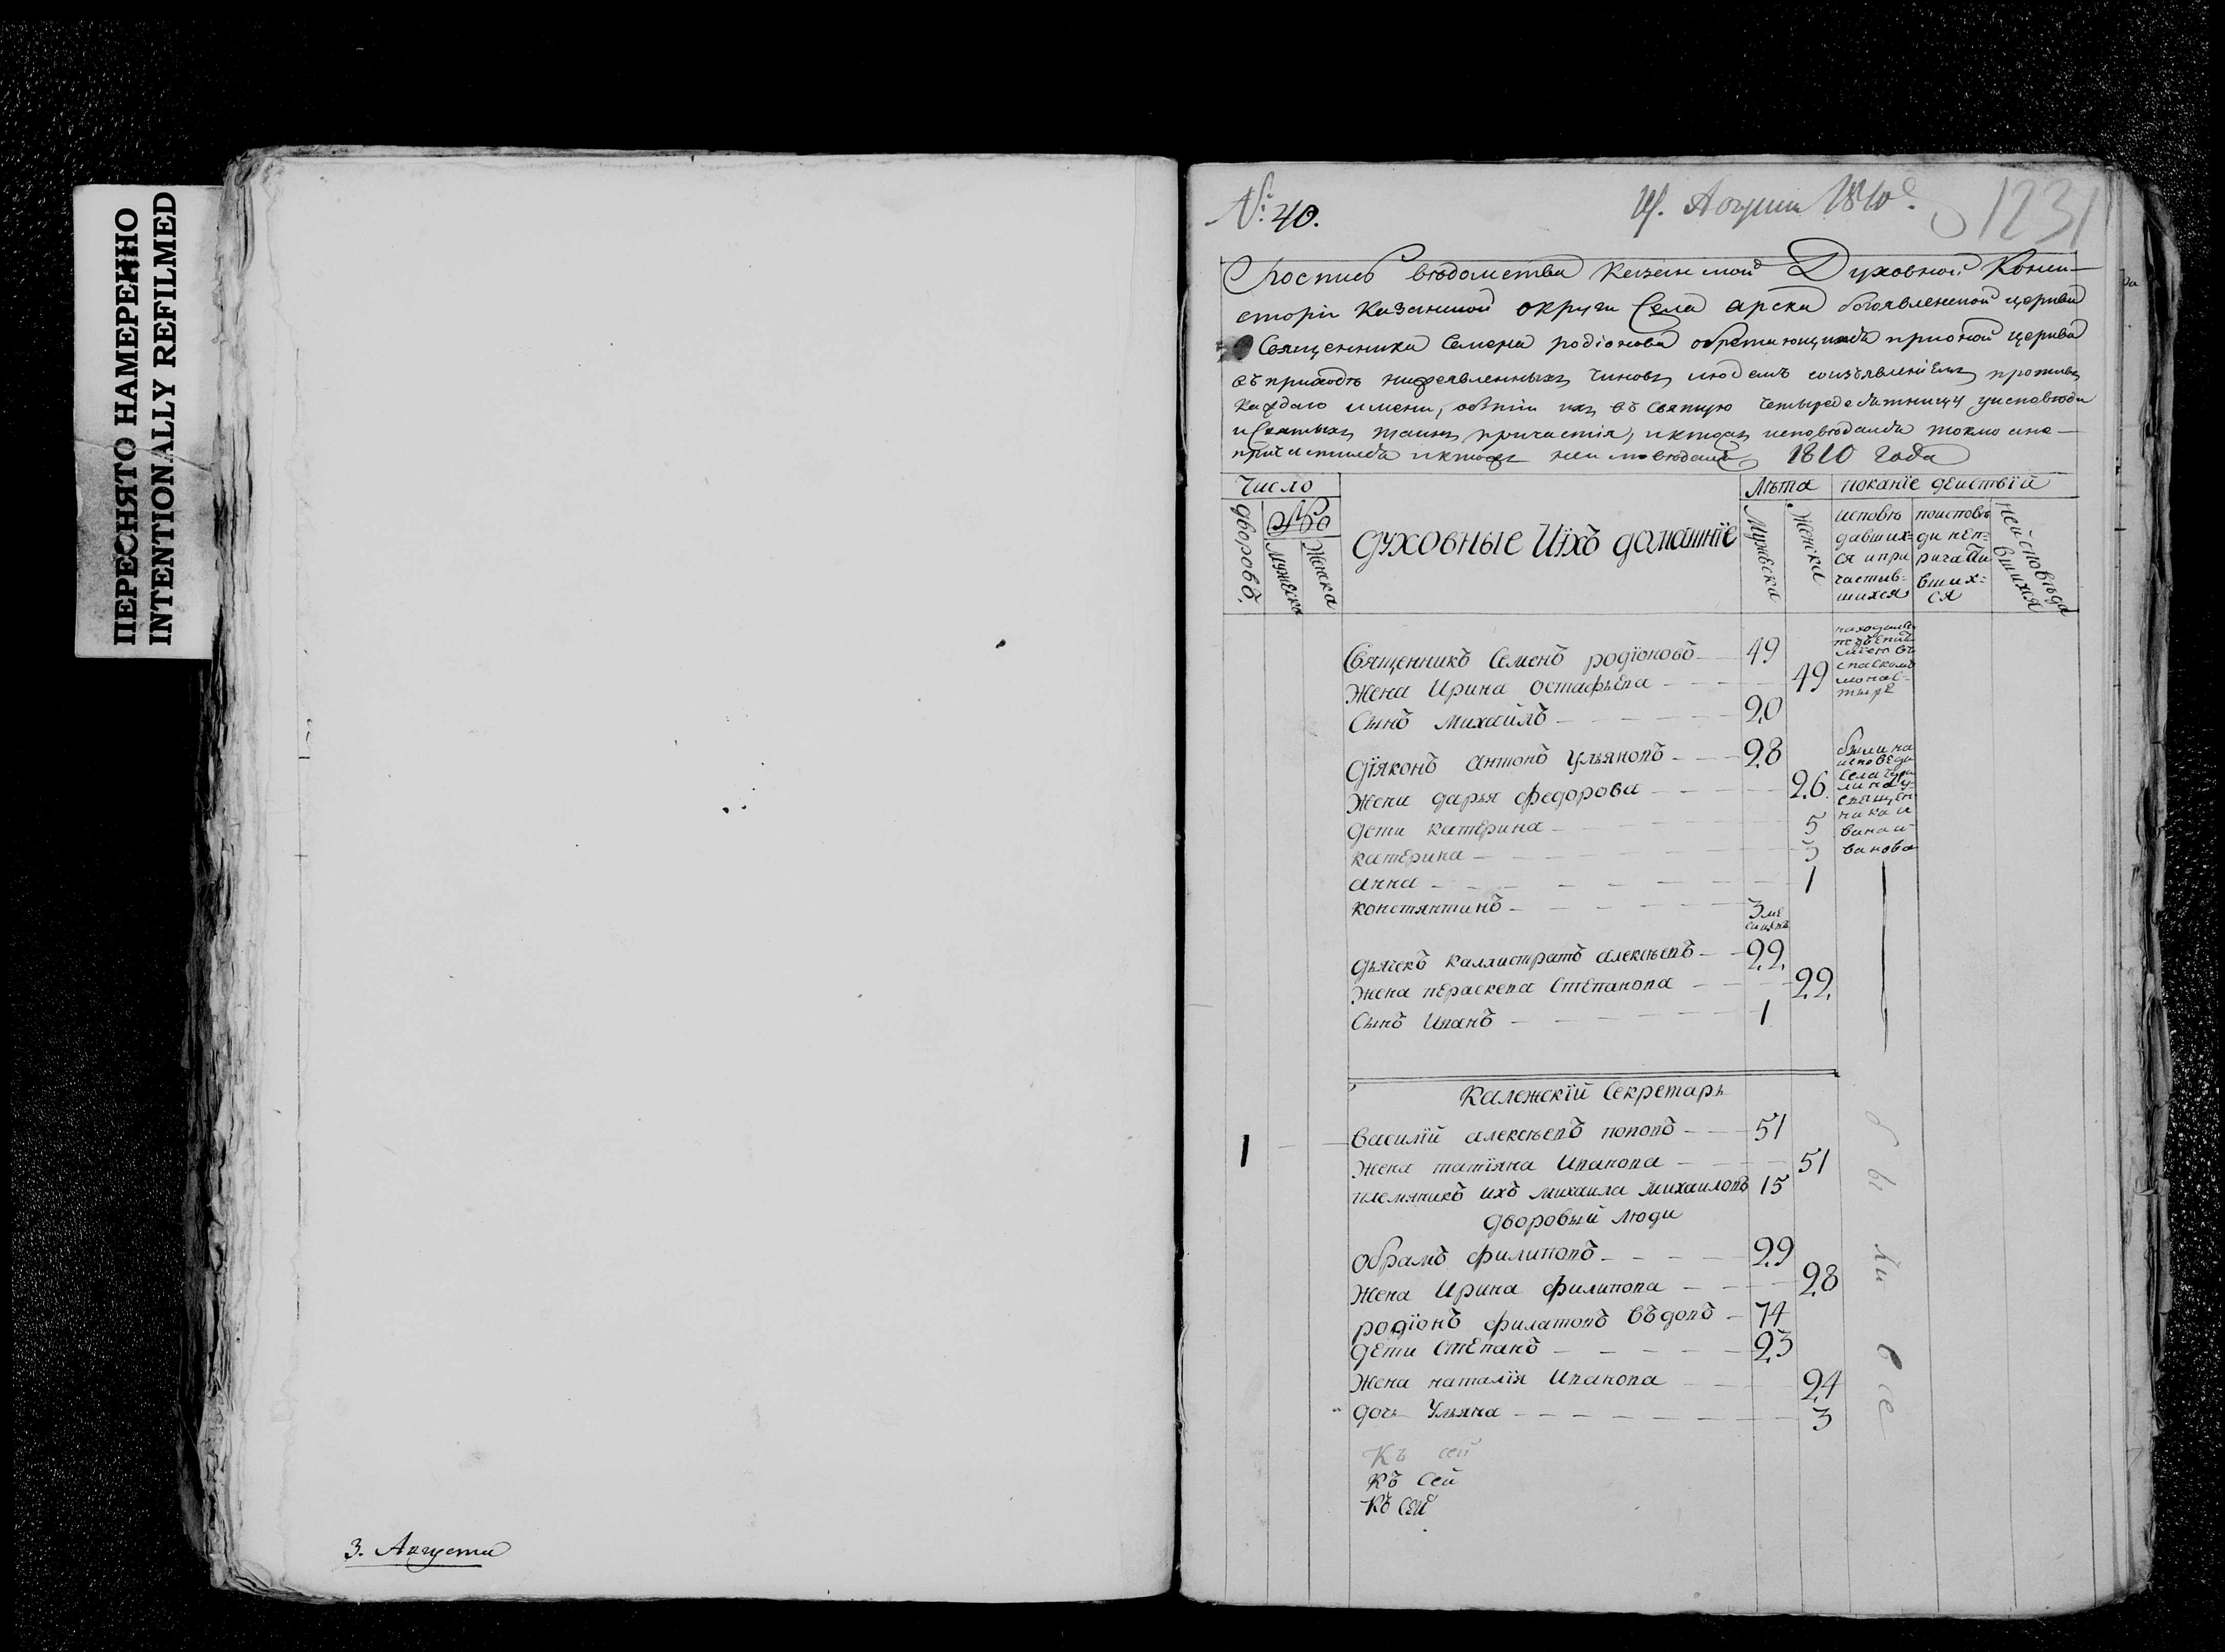 ПЕРЕСНЯТО НАМЕРЕННО
INTENTIONALLY REFILMED
3. Августа
№ 40.
Августа 1810
1231
Роспись вѣдомства Казанской Духовной Конси-
сторіи Казанской округи Села арска богоявленской церкви
Священника Семена родіонова обретающихся при оной церкви
въ приходѣ нижеявленныхъ чиновъ людемъ соизъявлениемъ противъ
каждаго имени, въ святую четыредесятницу у исповѣди
и Святыхъ таинъ причастія, и ктожъ исповѣдался токмо а не
причастился и ктожъ неисповѣдался 1810 года
Число
дворовъ.
Мужеска
Женска
духовные Ихъ домашніе
Лѣта
Мужеска
Женска
показніе действій
исповѣ
давших-
ся и при
частив-
шихся
поисповѣ
ди неп-
рича сти
вших-
ся
неисповѣда
вшихся
Священникъ Семенъ родіоновъ 49
Жена Ирина остафьева 49
Сынъ михайлъ 20
спаском
монас-
тырѣ
діяконъ антонъ ульяновъ 28
Жена дарья федорова 26.
дети катерина 5
катерина 3
анна 1
констянтинъ 3 ме
были на
исповеди
села
ника и
вана и-
ванова
дьячекъ каллистратъ алексѣевъ 22.
Жена пераскева Степанова 22.
Сынъ Иванъ 1
Калежскій Секретарь
1 Василій алексѣевъ поповъ 51
Жена татіяна Иванова 51
племяникъ ихъ михаила михаиловъ 15
дворовый люди
обрамъ филиповъ 29
Жена Ирина филипова 28
родіонъ филатовъ въдовъ 74
дети Степанъ 23
Жена наталія Иванова 24
дочь Ульяна 3
были все
Къ сей
Къ Сей
Къ Сей